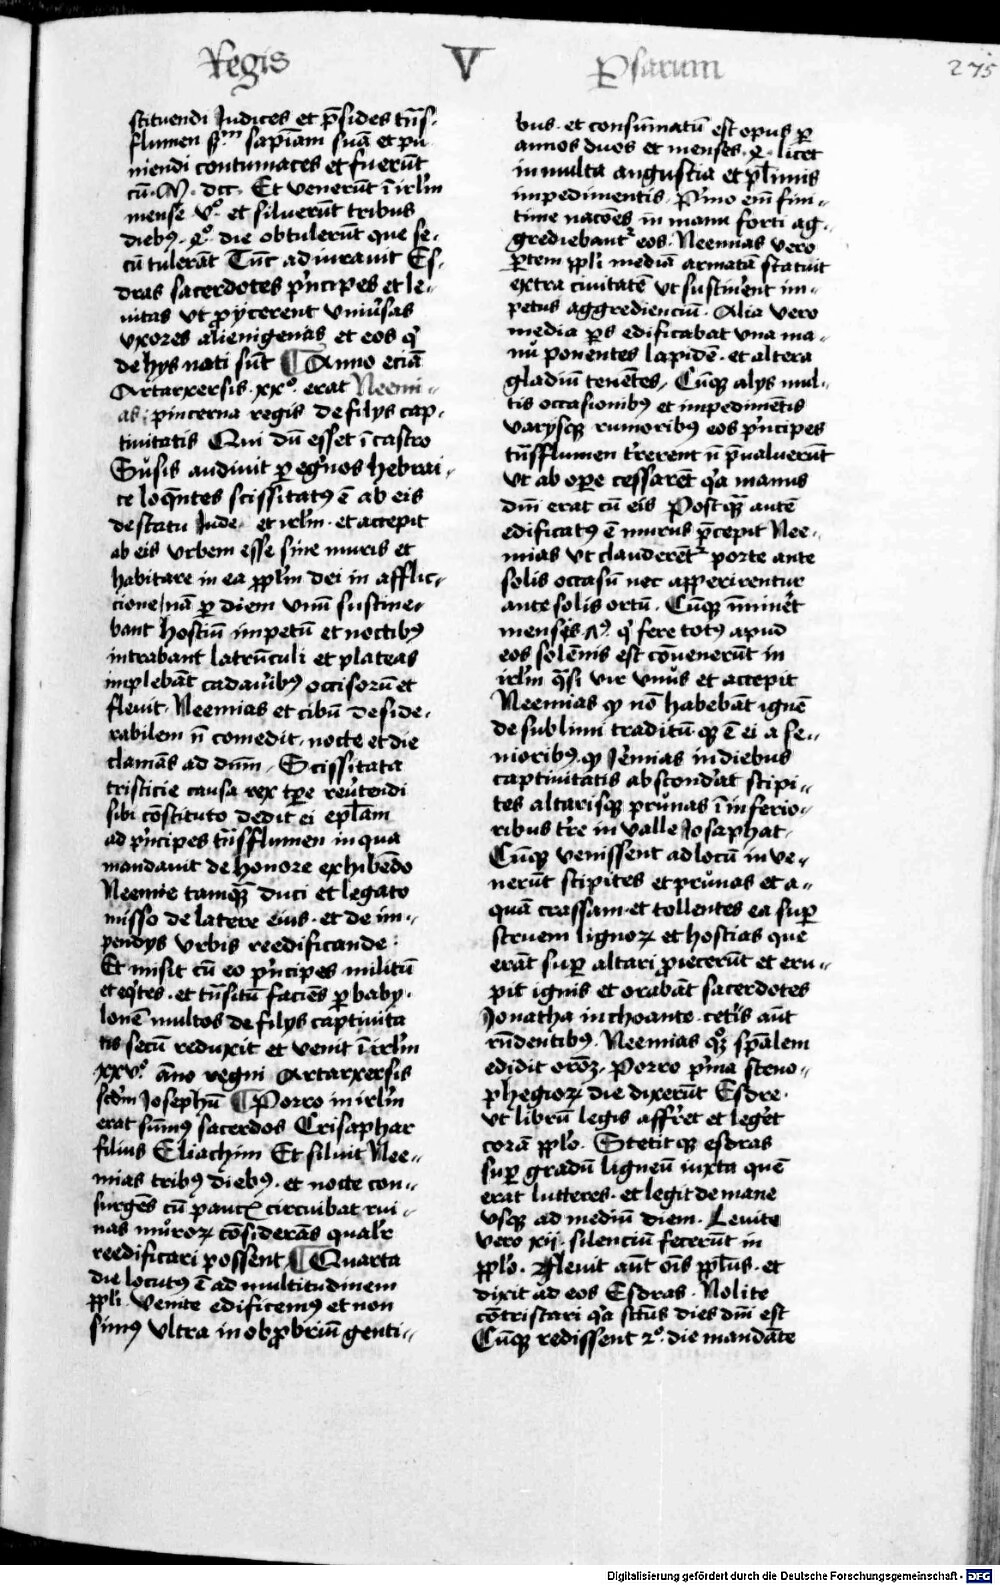 Regis V Persarum 275
stituendi Judices et p̄sides tn̄s
flumen scᵐ sapīam suā et pu
niendi contumaces et fuerūt
cū M dcc Et venerūt ī irlm̄
mense vº et siluerūt tribus
diebꝰ qº die obtulerūt que se-
cū tulerāt Tūc adiuravit Es-
dras sacerdotes p̄ncipes et le-
uitas vt ꝓycerent vniūsas
vxores alienigenas et eos q̄
de hys nati sūt ¶ Anno eciā
Artarxersis xxº erat Neemi-
as pincerna regis de filys cap-
tiuitatis Qui dū esset ī castro
Susis audiuit ꝑegⁱnos hebrai-
ce loqn̄tes scissitatꝰ ē ab eis
de statu Jude et irlm̄ et accepit
ab eis vrbem esse sine muris et
habitare in ea pplm̄ dei in afflic-
cione nā ꝑ diem vnū sustine-
bant hostiū impetū et noctibꝰ
intrabant latrūculi et plateas
implebāt cadauⁱibꝰ occisorū et
fleuit Neemias et cibū deside-
rabilem n̄ comedit nocte et die
clamās ad dnm̄ Scissitata
tristicie causa rex tꝑe reūtendi
sibi cōstituto dedit ei epl̄am
ad p̄ncipes tn̄sflumen in qua
mandauit de honore exhibēdo
Neemie tamq̄ duci et legato
misso de latere eius et de im-
pendys vrbis reedificande
Et misit cū eo p̄ncipes militū
et eq̄tes et tn̄sitū faciēs ꝑ baby-
lonē multos de filys captiuita
tis secū reduxit et venit ī irlm̄
xxvº āno regni Artarxersis
scd̄m Josephū ¶ Porro in irlm̄
erat sūmꝰ sacerdos Crisaphar
filius Eliachim Et siluit Nee-
mias tribꝰ diebꝰ et nocte con-
surgēs cū paucꝭ circuibat rui-
nas muroꝝ cōsiderās qualr̄
reedificari possent ¶ Quarta
die locutꝰ ē ad multitudinem
ppl̄i Venite edificemꝰ et non
simꝰ vltra in obꝓbriū genti-
bus et consūmatū est opus ꝑ
annos duos et menses q licet
in multa angustia et pl̄imis
impedimentis Pⁱmo em̄ fini-
time nacōes in manu forti ag-
grediebantᷣ eos Neemias vero
ꝑtem ppl̄i mediā armatā statuit
extra ciuitatē vt sustinⁱent im-
petus aggredienciū Alia vero
media ꝑs edificabat vna ma-
nu ponentes lapidē et altera
gladiū tenētes Cūqꝫ alys mul-
tis occasionibꝰ et impedimētis
varysqꝫ rumoribꝰ eos p̄ncipes
tn̄sflumen tr̄erent n̄ p̄ualuerūt
vt ab oꝑe cessarēt qⁱa manus
dm̄ erat cū eis Postq̄ autē
edificatꝰ ē murus p̄cepit Nee-
mias vt clauderētᷣ porte ante
solis occasū nec apperirentur
ante solis ortū Cūqꝫ īmineret
mensis q̄ fere totꝰ apud
eos solēnis est cōuenerūt in
irlm̄ q̄si vir vnus et accepit
Neemias qꝫ nō habebāt ignē
de sublimi traditū qꝫ ē ei a se-
nioribꝰ qꝫ Jeⁱmias in diebus
captiuitatis abscondⁱat stipi-
tes altarisqꝫ prunas ī inferio-
ribus tr̄e in valle Josaphat
Cūqꝫ venissent ad locū inue-
nerūt stipites et prunas et a-
quā crassam et tollentes ea suꝑ
struem lignoꝝ et hostias que
erāt suꝑ altari ꝓiecerūt et eru-
pit ignis et orabāt sacerdotes
Jonatha inchoante cetⁱis aūt
rn̄dentibꝰ Neemias qꝫ spālem
edidit orōꝫ Porro pⁱma sceno-
phegioꝝ die dixerūt Esdre
vt librū legis affⁱret et legⁱet
corā ppl̄o Stetitqꝫ esdras
suꝑ gradū ligneū iuxta quē
erat lutteres et legit de mane
vsqꝫ ad mediū diem Leuite
vero xij silenciū fecerūt in
ppl̄o Fleuit aūt ōis ppl̄us et
dixit ad eos Esdras Nolite
cōtristari qⁱa sct̄us dies dm̄ est
Cūqꝫ redissent 2º die mandāte
Digitalisierung gefördert durch die Deutsche Forschungsgemeinschaft - DFG